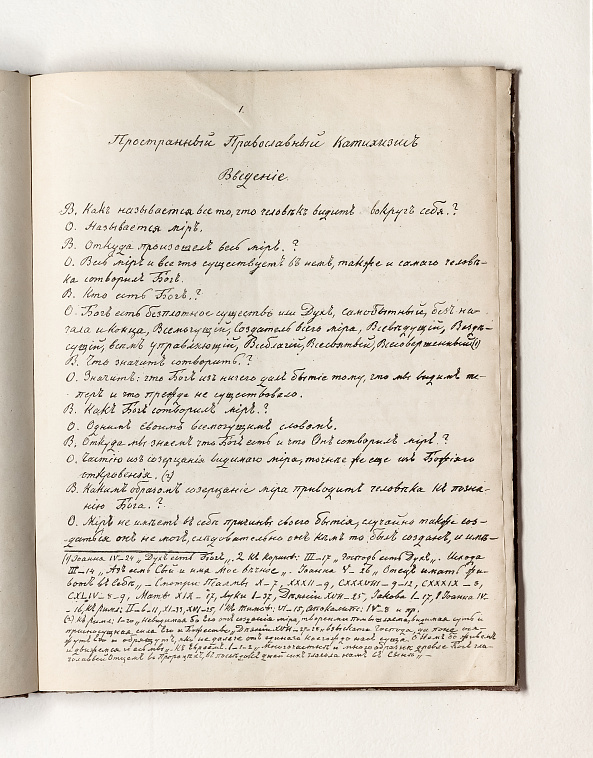 1.
Пространный Православный Катихизисъ
Введеніе.
В. Какъ называется все то, что человѣкъ видитъ вокругъ себя.?
О. Называется міръ.
В. Откуда произошелъ весь міръ.?
О. Весь міръ и все что существуетъ въ немъ, также и самаго человѣ-
ка сотворилъ Богъ.
В. Кто есть Богъ.?
О. Богъ есть безплотное существо или Духъ, самобытный, безъ на-
чала и конца, Всемогущій, Создатель всего міра, Всевѣдущій, Вездѣ-
сущій, всѣмъ управляющій, Всеблагій, Всесвятый, Всесовершенный (1)
В. Что значитъ сотворить.?
О. Значитъ: что Богъ изъ ничего далъ бытіе тому, что мы видимъ те-
перь и что прежде не существовало.
В. Какъ Богъ сотворилъ міръ.?
О. Однимъ своимъ всемогущимъ словомъ.
В. Откуда мы знаемъ что Богъ есть и что Онъ сотворилъ міръ.?
О. Частію изъ созерцанія видимаго міра, точнѣе же еще изъ Божіяго
откровенія. (2)
В. Какимъ образомъ созерцаніе міра приводитъ человѣка къ позна-
нію Бога.?
О. Міръ не имѣетъ въ себѣ причины своего бытія, случайно также соз-
даться онъ не могъ, слѣдовательно онъ кѣмъ то былъ созданъ, и имѣ-
(1) Іоанна IV–24 „Духъ есть Богъ„. 2 къ Коринѳ: III–17 „Господь есть Духъ„. Исхода
III–14 „Азъ есмь Сый и имя Мое вѣчное„. Іоанна V–26 „Отецъ имать жи-
вотъ въ Себѣ„ – Смотри: Псалмы X–7, XXXII–9, CXXXVIII–7–12, CXXXIX–8,
CXLIV–8–9, Матѳ: XIX–17, Луки 1–37, Дѣяній XVII–25, Іакова 1–17, 1 Іоанна IV
–16, къ Римл: II–6–11, XI–33, XVI–25, 1 къ Тимоѳ: VI–15, Апокалипс: IV–8 и пр.
(2) Къ Римл: 1–20 „Невидимая бо Его отъ созданія міра, твореньми помышляема, видима суть и
присносущная сила Его и Божество„ Дѣяній XVII–27, 28 „Взыскати Господа, да поне ося-
жутъ Его и обрящутъ, яко недалече отъ единаго коегождо насъ суща. О Немъ бо живемъ
и движемся и есмы„. Къ Евреемъ 1–1–2 „Многочастнѣ и многообразнѣ древле Богъ гла-
голавый Отцемъ въ Пророцѣхъ, въ послѣдокъ дній сихъ глагола намъ въ Сынѣ„ –